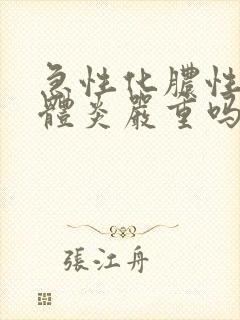 急性化膿性
體炎嚴重嗎
張江舟